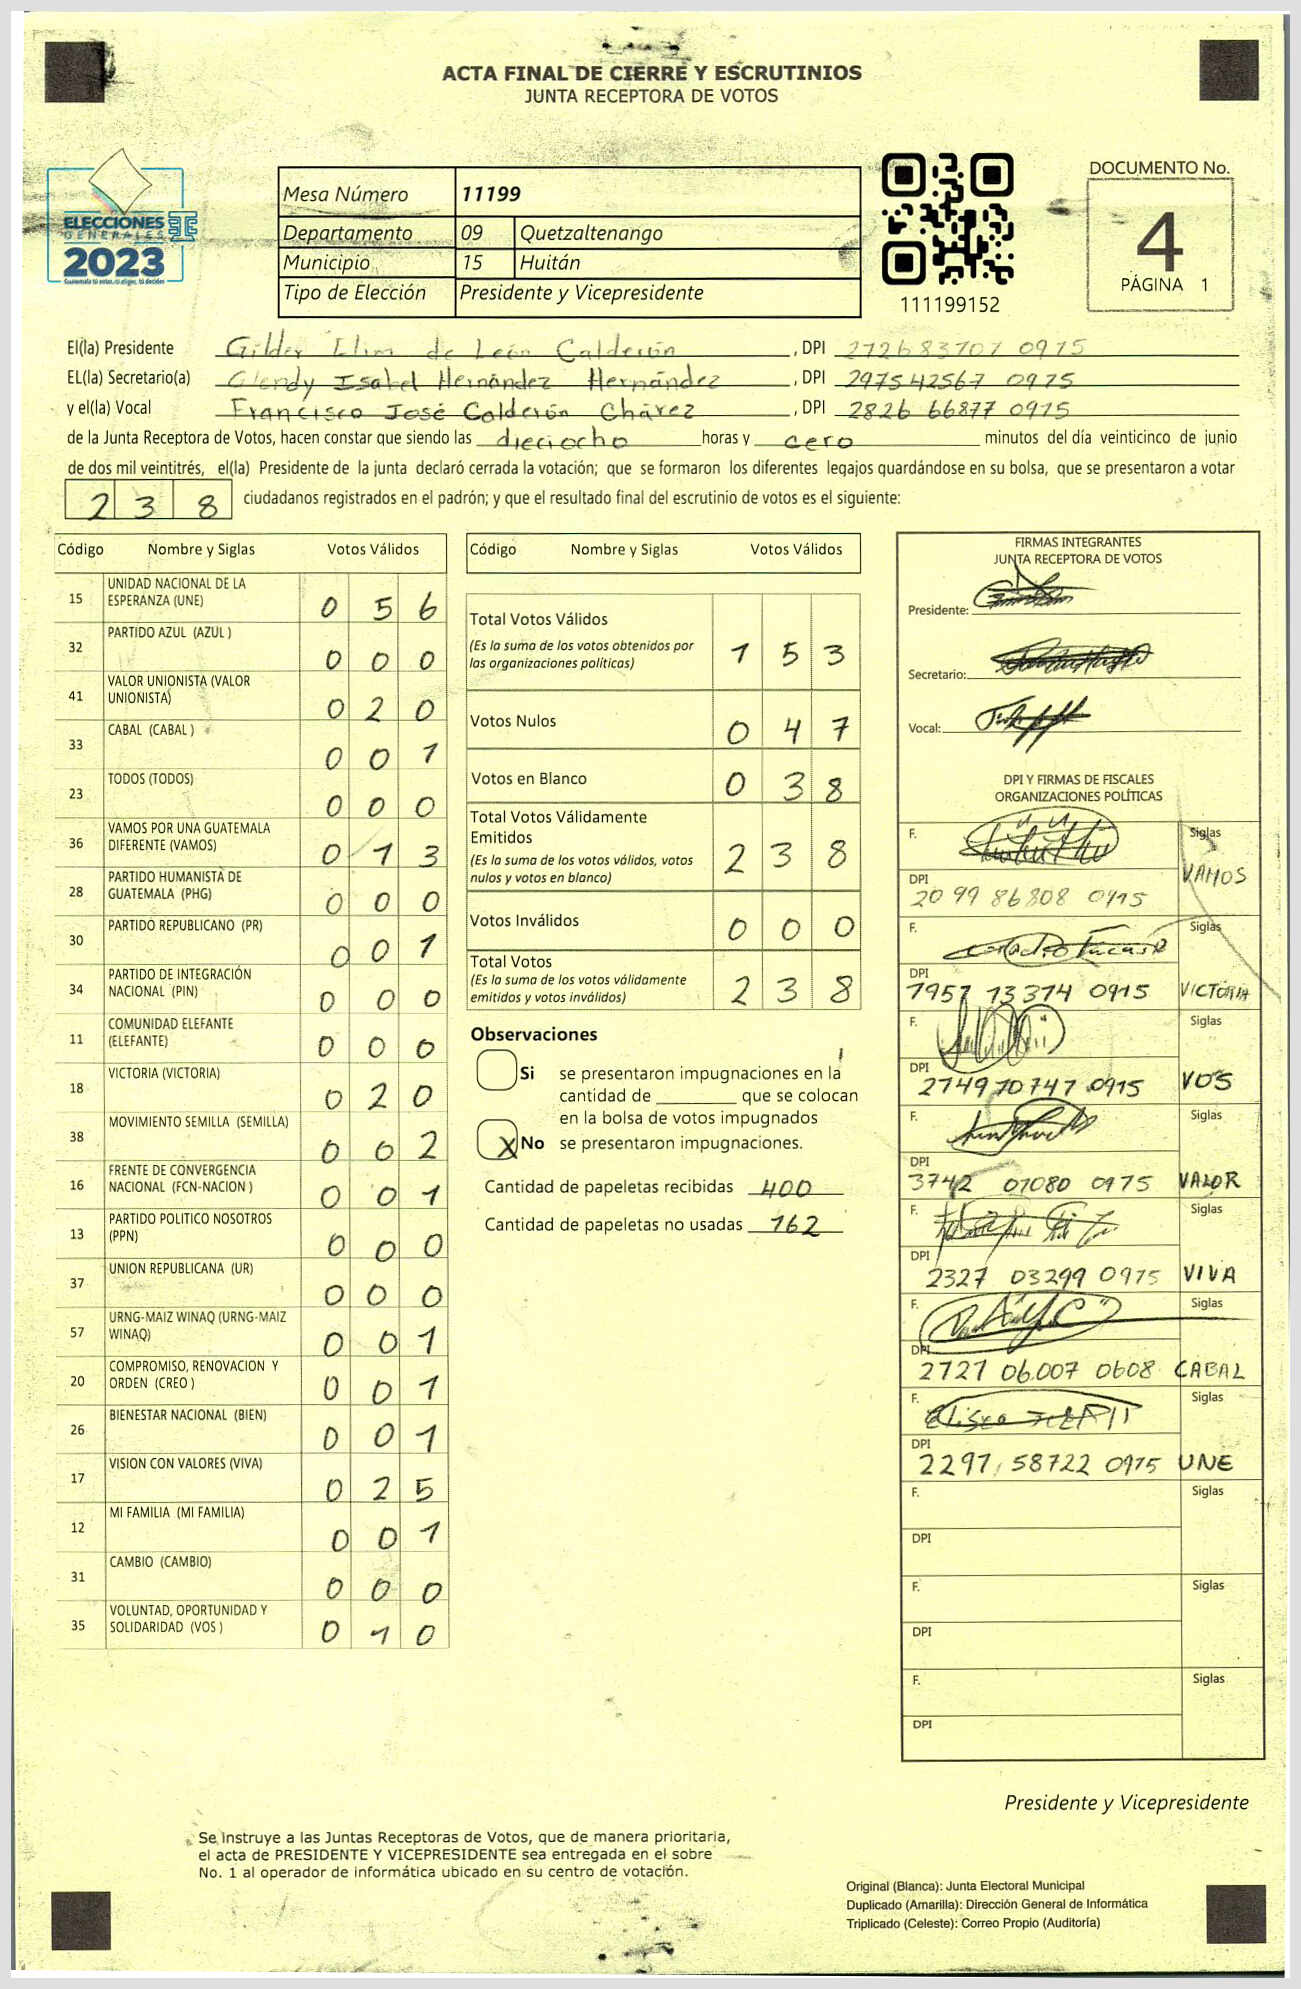 ACTA FINAL DE CIERRE Y ESCRUTINIOS
JUNTA RECEPTORA DE VOTOS
ELECCIONES
GENERALES
2023
Guatemala tú estas, tú eliges, tú decides
Mesa Número 11199
Departamento 09 Quetzaltenango
Municipio 15 Huitán
Tipo de Elección Presidente y Vicepresidente
111199152
DOCUMENTO No.
4
PÁGINA 1
El(la) Presidente Gilder Elim de León Calderón , DPI 272683707 0915
EL(la) Secretario(a) Glendy Isabel Hernández Hernández , DPI 297542567 0915
y el(la) Vocal Francisco José Calderón Chávez , DPI 2826 66877 0915
de la Junta Receptora de Votos, hacen constar que siendo las dieciocho horas y cero minutos del día veinticinco de junio
de dos mil veintitrés, el(la) Presidente de la junta declaró cerrada la votación; que se formaron los diferentes legajos quardándose en su bolsa, que se presentaron a votar
2 3 8 ciudadanos registrados en el padrón; y que el resultado final del escrutinio de votos es el siguiente:
Código Nombre y Siglas Votos Válidos
15 UNIDAD NACIONAL DE LA
ESPERANZA (UNE) 0 5 6
32 PARTIDO AZUL (AZUL ) 0 0 0
41 VALOR UNIONISTA (VALOR
UNIONISTA) 0 2 0
33 CABAL (CABAL ) 0 0 1
23 TODOS (TODOS) 0 0 0
36 VAMOS POR UNA GUATEMALA
DIFERENTE (VAMOS) 0 1 3
28 PARTIDO HUMANISTA DE
GUATEMALA (PHG) 0 0 0
30 PARTIDO REPUBLICANO (PR) 0 0 1
34 PARTIDO DE INTEGRACIÓN
NACIONAL (PIN) 0 0 0
11 COMUNIDAD ELEFANTE
(ELEFANTE) 0 0 0
18 VICTORIA (VICTORIA) 0 2 0
38 MOVIMIENTO SEMILLA (SEMILLA) 0 0 2
16 FRENTE DE CONVERGENCIA
NACIONAL (FCN-NACION ) 0 0 1
13 PARTIDO POLITICO NOSOTROS
(PPN) 0 0 0
37 UNION REPUBLICANA (UR) 0 0 0
57 URNG-MAIZ WINAQ (URNG-MAIZ
WINAQ) 0 0 1
20 COMPROMISO, RENOVACION Y
ORDEN (CREO ) 0 0 1
26 BIENESTAR NACIONAL (BIEN) 0 0 1
17 VISION CON VALORES (VIVA) 0 2 5
12 MI FAMILIA (MI FAMILIA) 0 0 1
31 CAMBIO (CAMBIO) 0 0 0
35 VOLUNTAD, OPORTUNIDAD Y
SOLIDARIDAD (VOS ) 0 1 0
Código Nombre y Siglas Votos Válidos
Total Votos Válidos
(Es la suma de los votos obtenidos por
las organizaciones políticas) 1 5 3
Votos Nulos 0 4 7
Votos en Blanco 0 3 8
Total Votos Válidamente
Emitidos
(Es la suma de los votos válidos, votos
nulos y votos en blanco) 2 3 8
Votos Inválidos 0 0 0
Total Votos
(Es la suma de los votos válidamente
emitidos y votos inválidos) 2 3 8
Observaciones
Si se presentaron impugnaciones en la
cantidad de ________ que se colocan
en la bolsa de votos impugnados
X No se presentaron impugnaciones.
Cantidad de papeletas recibidas 400
Cantidad de papeletas no usadas 162
FIRMAS INTEGRANTES
JUNTA RECEPTORA DE VOTOS
Presidente:
Secretario:
Vocal:
DPI Y FIRMAS DE FISCALES
ORGANIZACIONES POLÍTICAS
F. Siglas
VAMOS
DPI
20 99 86808 0915
F. Siglas
DPI
1957 13374 0915 VICTORIA
F. Siglas
DPI
274970747 0915 VOS
F. Siglas
DPI
3742 07080 0915 VALOR
F. Siglas
DPI
2327 03299 0915 VIVA
F. Siglas
DPI
2727 06007 0608 CABAL
F. Siglas
DPI
2297 58722 0915 UNE
F. Siglas
DPI
F. Siglas
DPI
F. Siglas
DPI
Presidente y Vicepresidente
Se instruye a las Juntas Receptoras de Votos, que de manera prioritaria,
el acta de PRESIDENTE Y VICEPRESIDENTE sea entregada en el sobre
No. 1 al operador de informática ubicado en su centro de votación.
Original (Blanca): Junta Electoral Municipal
Duplicado (Amarilla): Dirección General de Informática
Triplicado (Celeste): Correo Propio (Auditoría)